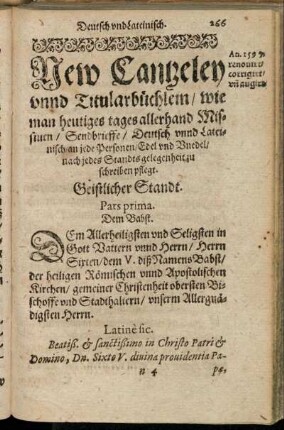 Deutsch vnd Lateinisch. 266
New Cantzeley
vnnd Titularbüchlein / wie
man heutiges tages allerhand Mis-
siuen / Sendbrieffe / Deutsch vnnd Latei-
nisch an jede Personen / Edel vnd Vnedel /
nach jedes Standts gelegenheit zu
schreiben pflegt.
Geistlicher Standt.
Pars prima.
Dem Babst.
DEm Allerheiligsten vnd Seligsten in
Gott Vattern vnnd Herrn / Herrn
Sixten / dem V. diß Namens Babst /
der heiligen Römischen vnnd Apostolischen
Kirchen / gemeiner Christenheit obersten Bi-
schoffe vnd Stadthaltern / vnserm Allergnä-
digsten Herrn.
Latinè sic.
Beatiß. & sanctißimo in Christo Patri &
Domino, Dn. Sixto V. diuina prouidentia Pa-
n 4 pæ,
An.
renouat'
corrigit'
vñ augit'